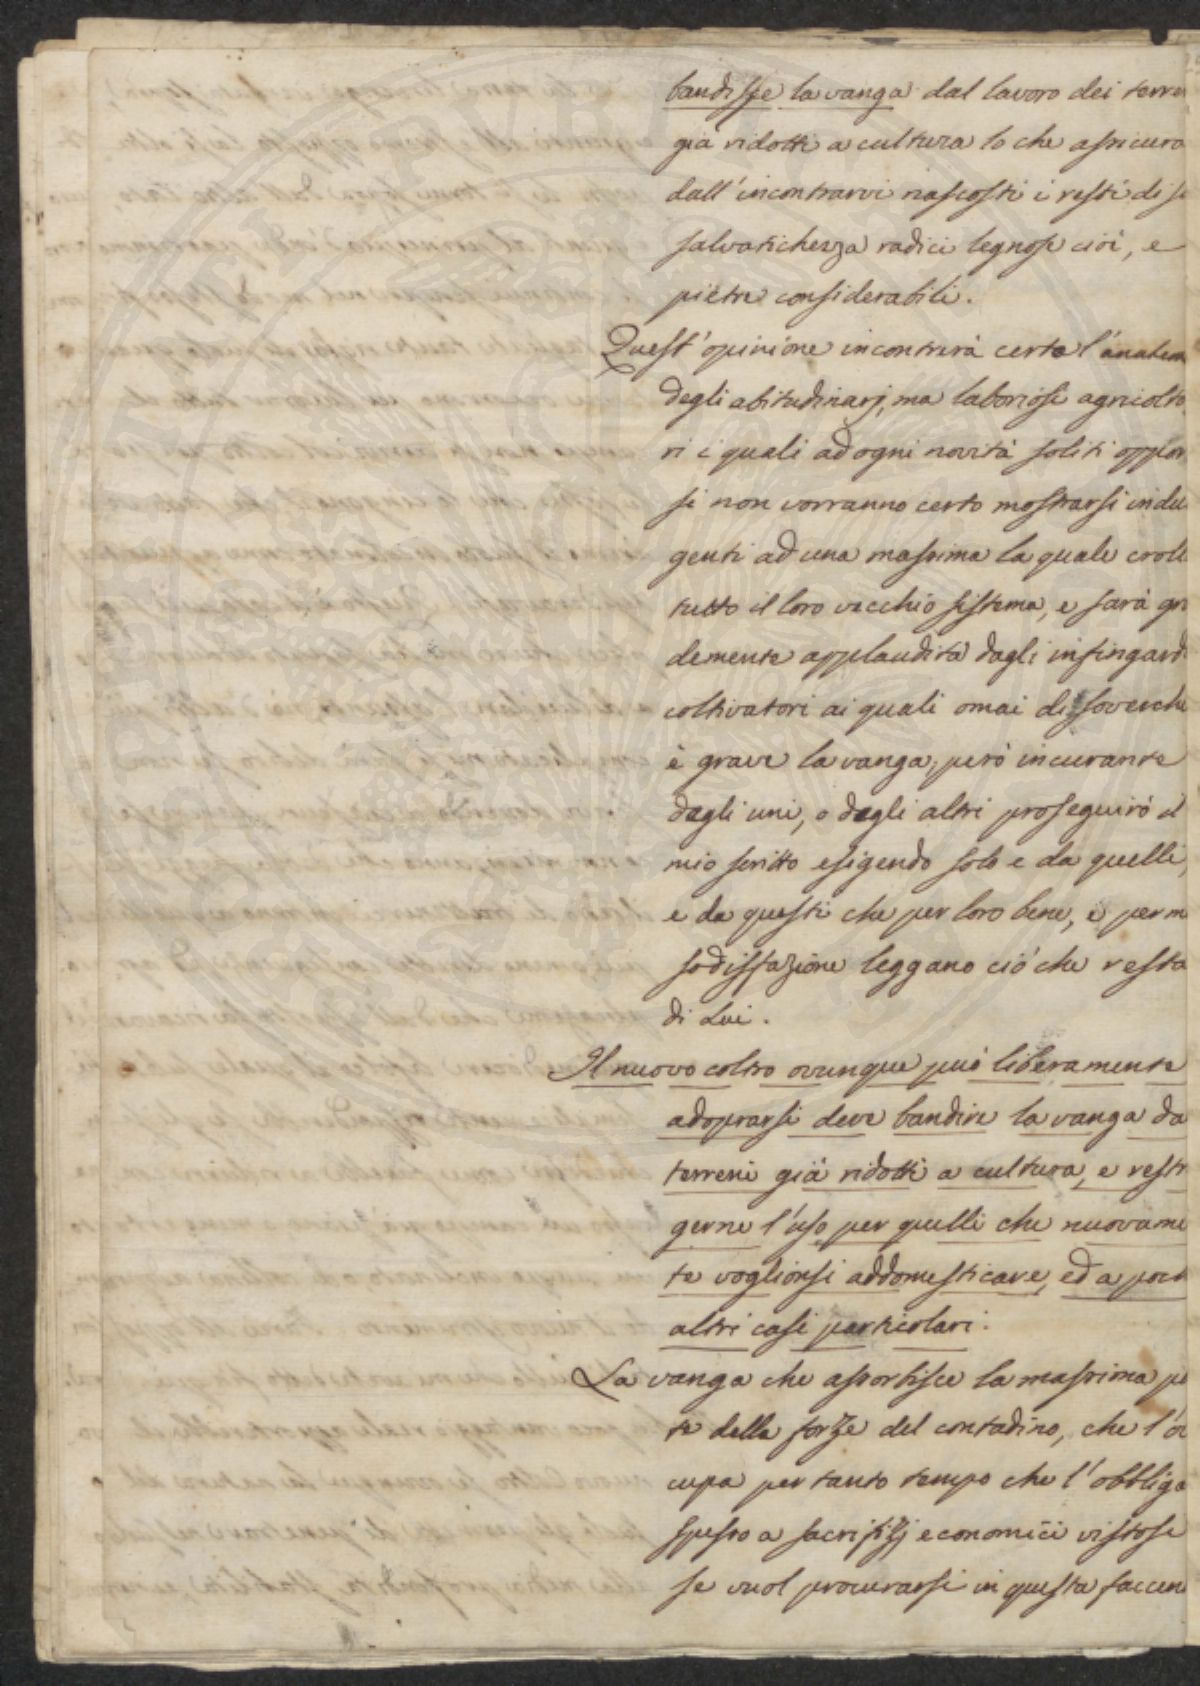 bandisse la vanga dal lavoro dei terre
già ridotti a cultura lo che assicura
dall'incontrarvi nascosti i resti di s
salvatichezza radici legnose cioè, e
pietre considerabili.
Quest'opinione incontrerà certo l'anatem
degli abitudinarj, ma laboriosi agricolto
ri i quali ad ogni novità soliti oppor
si non vorranno certo mostrarsi indu
genti ad una massima la quale croll
tutto il loro vecchio sistema, e sarà gr
demente applaudita dagli infingard
coltivatori ai quali omai di soverch
è grave la vanga; però incurante
degli uni, o degli altri proseguirò il
mio scritto esigendo solo e da quelli,
e da questi che per loro bene, e per m
sodisfazione leggano ciò che resta
di Lui.
Il nuovo coltro ovunque può liberamente
adoprarsi deve bandire la vanga da
terreni già ridotti a cultura, e restr
gerne l'uso per quelli che nuovame
te voglionsi addomesticare, ed a poch
altri casi particolari.
La vanga che assorbisce la massima pa
te delle forze del contadino, che l'oc
cupa per tanto tempo che l'obbliga
spesso a sacrifizj economici vistosi
se vuol procurarsi in questa faccen